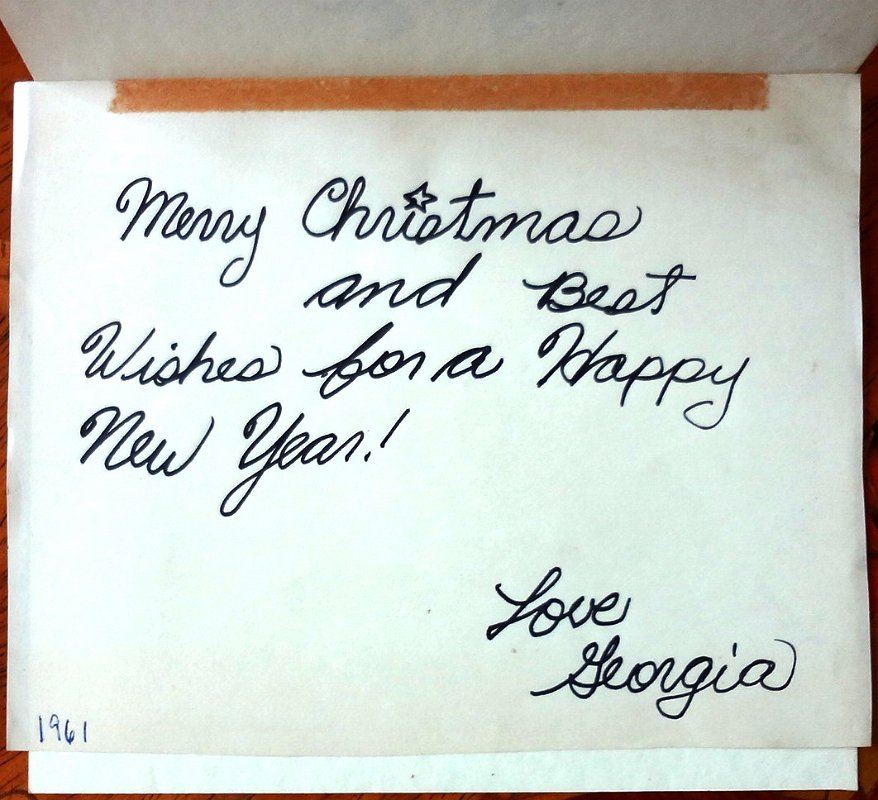 Merry Christmas
and Best
Wishes for a Happy
New Year!
Love
Georgia
1961